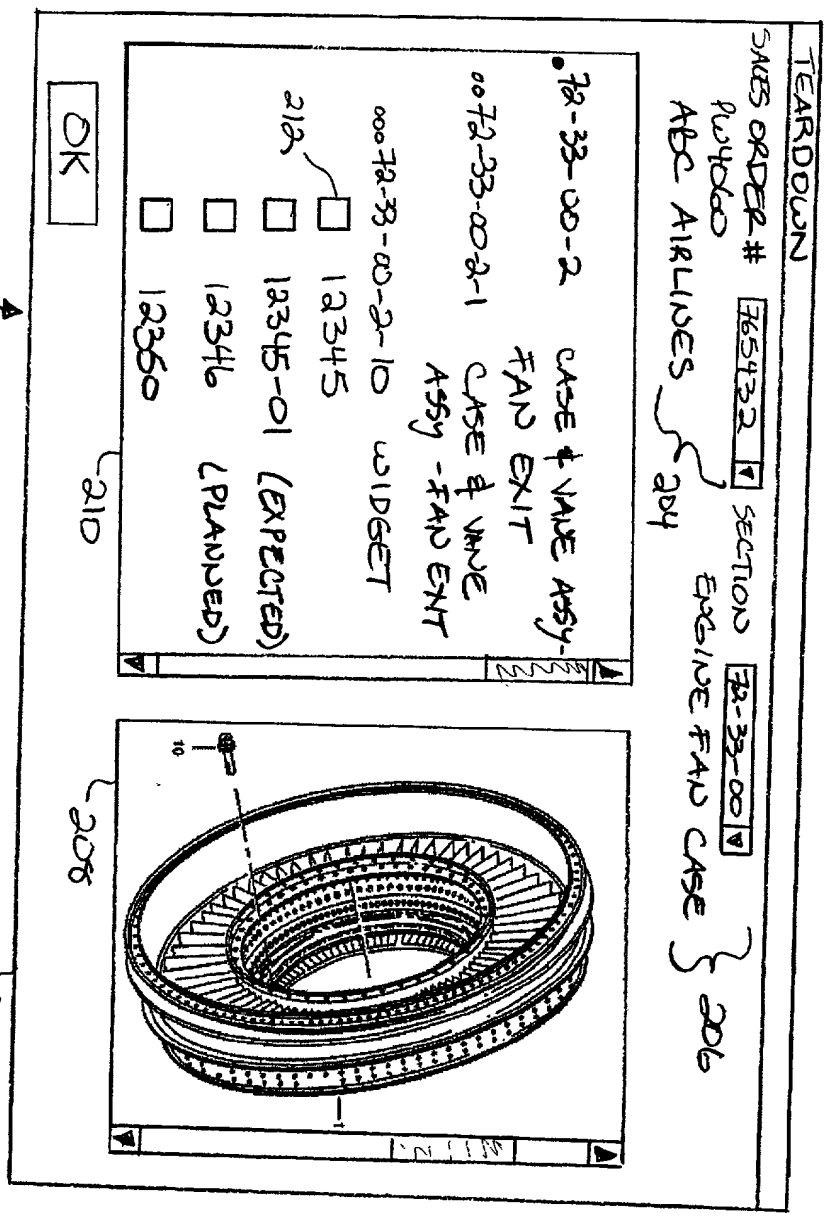 TEARDOWN
SALES ORDER # 765432 SECTION 72-33-00
PW4060 ENGINE FAN CASE 206
ABC AIRLINES 204
.72-33-00-2 CASE & VANE ASSY-
FAN EXIT
..72-33-00-2-1 CASE & VANE
ASSY - FAN EXIT
...72-33-00-2-10 WIDGET
212 12345
12345-01 (EXPECTED)
12346 (PLANNED)
12350
OK
210
10
1
208